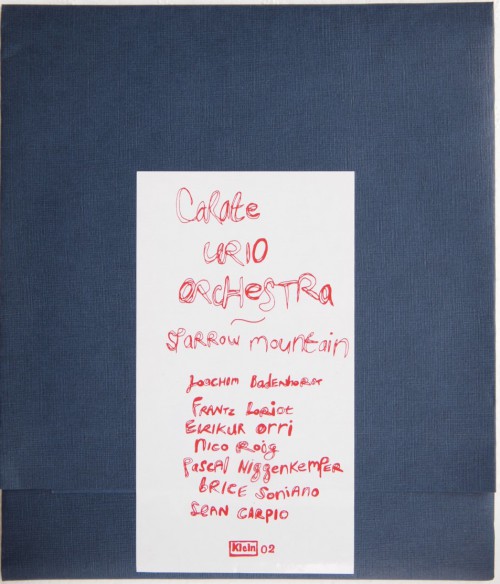 Carate
URIO
ORCHESTRa
~
sparrow mountain
Joachim Badenhorst
Frantz Loriot
Eirikur orri
Nico Roig
Pascal Niggenkemper
Brice Soniano
Sean Carpio
Klein 02